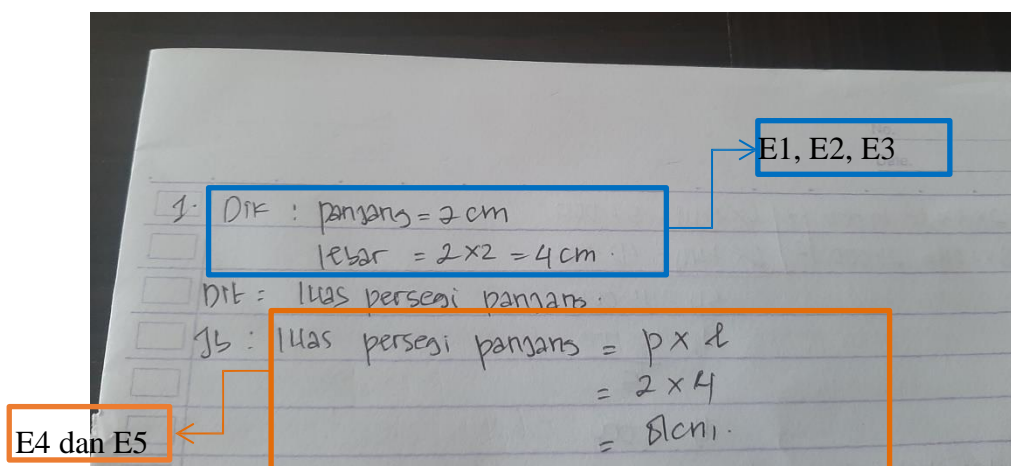 No.
Date.
E1, E2, E3
1. Dik : panjang = 2 cm
lebar = 2 x 2 = 4 cm.
Dit : luas persegi panjang.
Jb : luas persegi panjang = p x l
= 2 x 4
= 8 cm.
E4 dan E5